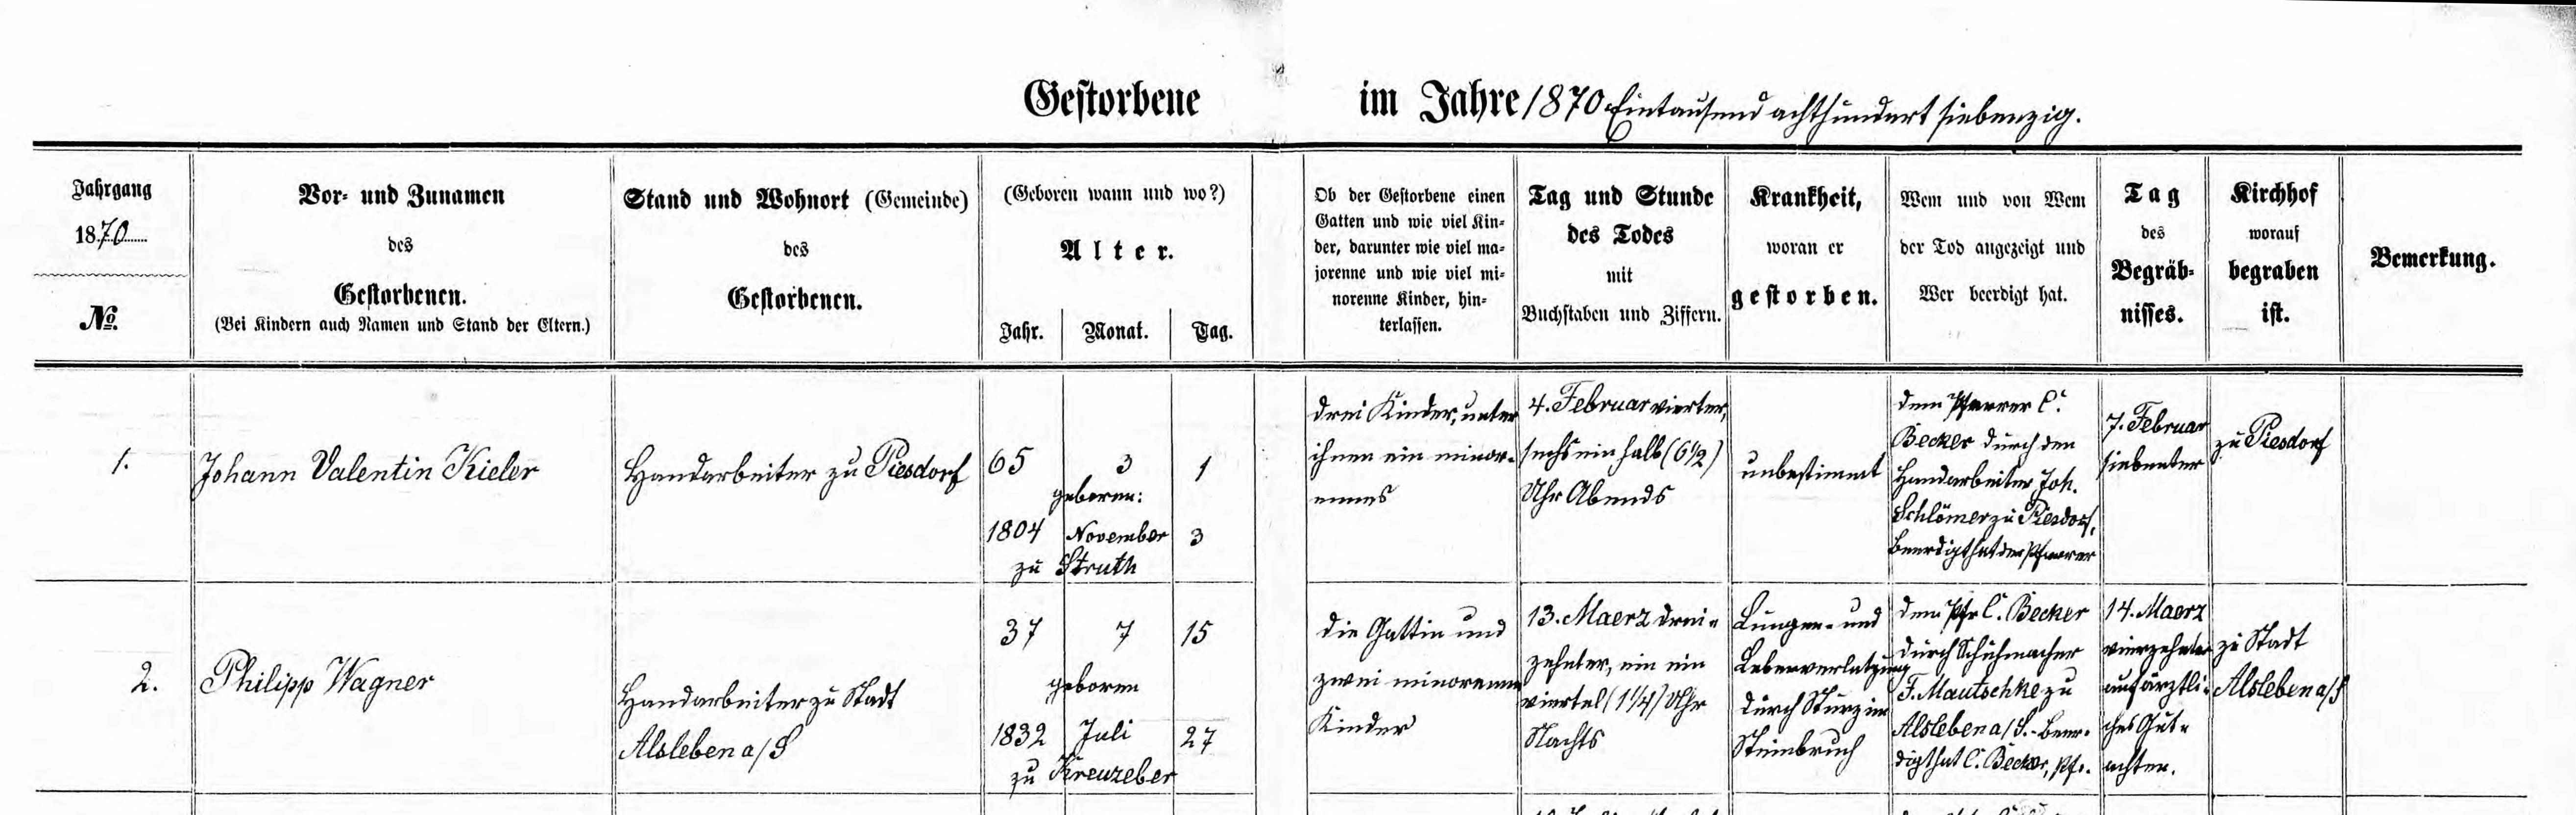 Gestorbene im Jahre 1870 Eintausend achthundert siebenzig.
Jahrgang
1870
No.
Vor- und Zunamen
des
Gestorbenen.
(Bei Kindern auch Namen und Stand der Eltern.)
Stand und Wohnort (Gemeinde)
des
Gestorbenen.
(Geboren wann und wo?)
Alter.
Jahr. Monat. Tag.
Ob der Gestorbene einen
Gatten und wie viel Kin-
der, darunter wie viel ma-
jorenne und wie viel mi-
norenne Kinder, hin-
terlassen.
Tag und Stunde
des Todes
mit
Buchstaben und Ziffern.
Krankheit,
woran er
gestorben.
Wem und von Wem
der Tod angezeigt und
Wer beerdigt hat.
Tag
des
Begräb-
nisses.
Kirchhof
worauf
begraben
ist.
Bemerkung.
1.
Johann Valentin Kieler
Handarbeiter zu Piesdorf
65 3 1
geboren:
1804 November 3
zu Struth
drei Kinder, unter
ihnen ein minor-
ennes
4. Februar vierter,
sechs ein halb (6 1/2)
Uhr Abends
unbestimmt
dem Pfarrer C.
Becker durch den
Handarbeiter Joh.
Schlömer zu Piesdorf,
Beerdigt hat der Pfarrer
7. Februar
siebenter
zu Piesdorf
2.
Philipp Wagner
Handarbeiter zu Stadt
Alsleben a/S
37 7 15
geboren
1832 Juli 27
zu Kreuzeber
die Gattin und
zwei minorenne
Kinder
13. Maerz drei-
zehnter, ein ein
viertel (1 1/4) Uhr
Nachts
Lungen- und
Leberverletzung
durch Sturz im
Steinbruch
dem Pfr C. Becker
durch Schuhmacher
F. Mautschke zu
Alsleben a/S. - Beer-
digt hat C. Becker, Pfr.
14. Maerz
vierzehnter
auf ärztli-
ches Gut-
achten.
zu Stadt
Alsleben a/S